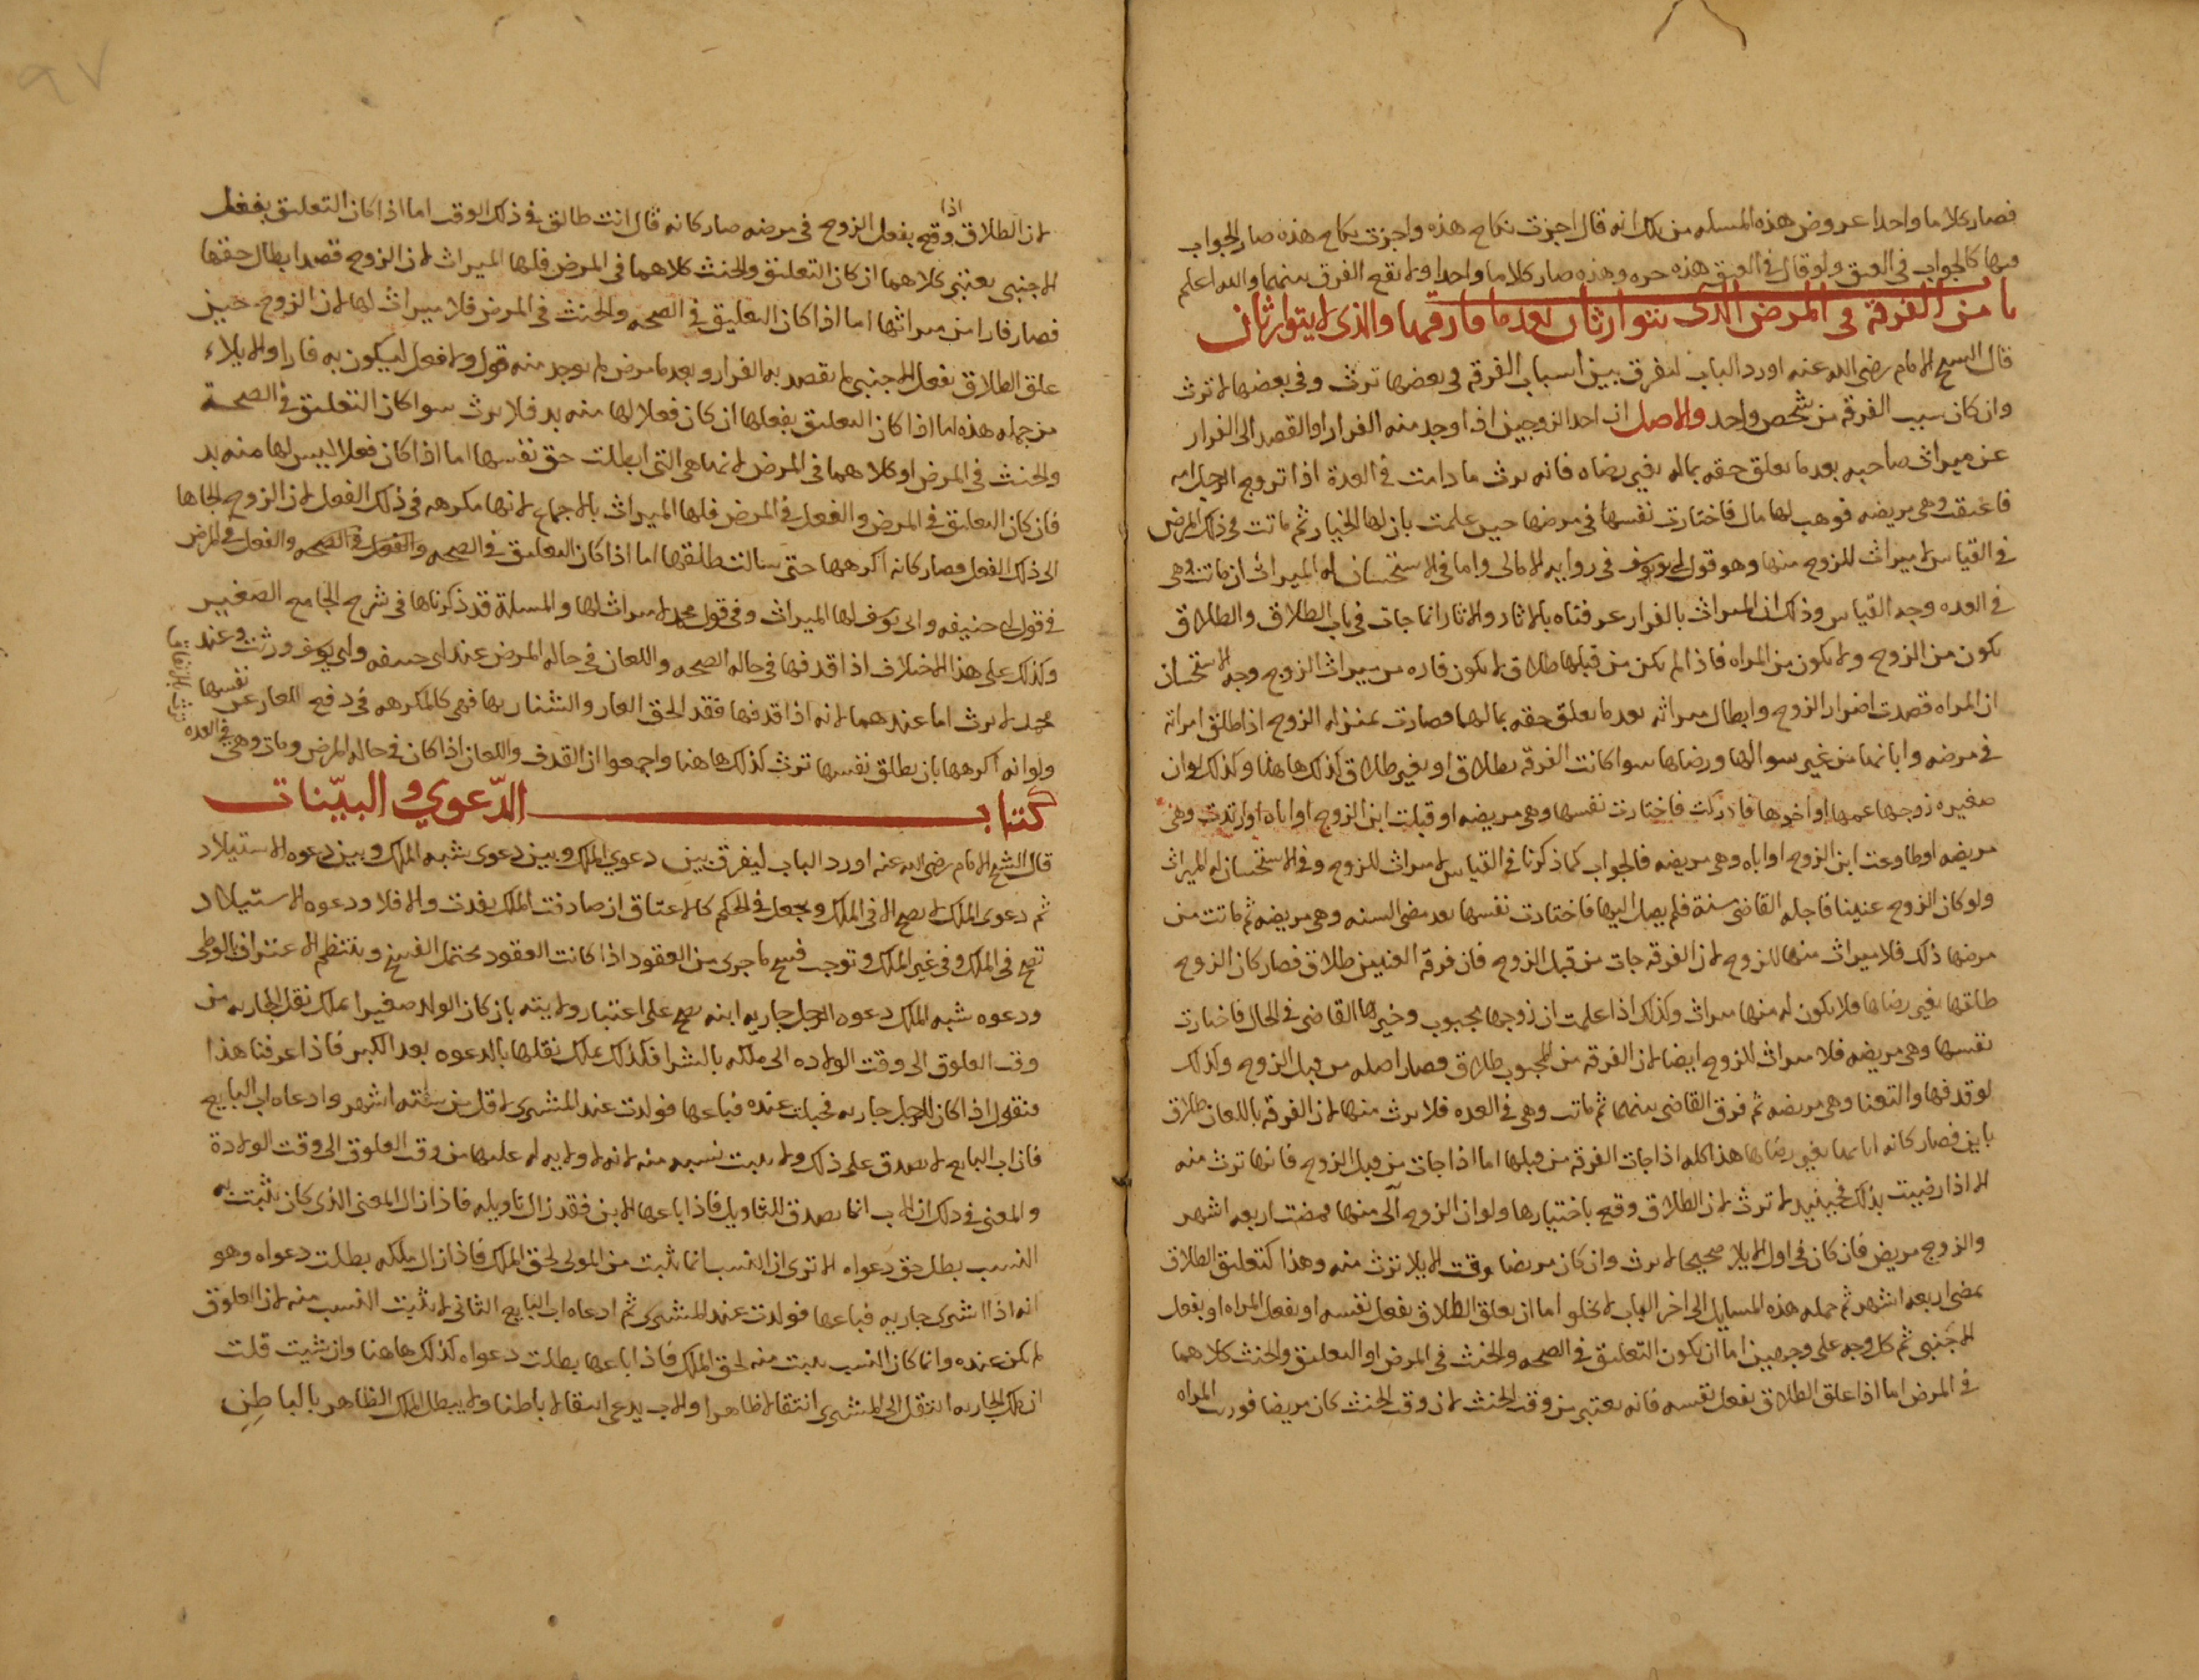 فصار كلاما واحدا عروض هذه المسله من تلك انه قال اجزت نكاح هذه واجزت نكاح هذه صار الجواب
فيها كالجواب في العتق ولو قال في العتق هذه حره وهذه صار كلاما واحدا ولا تقع الفرق بينهما والله اعلم
باب من الفرقة في المرض الذي يتوارثان بعد ما فارقها والذي لا يتوارثان
قال الشيخ الامام رضي الله عنه اورد الباب ليفرق بين اسباب الفرقه في بعضها ترث وفي بعضها لا ترث
وان كان سبب الفرقه من شخص واحد والاصل ان احد الزوجين اذا وجد منه الفرار او القصد الى الفرار
عن ميراث صاحبه بعد ما تعلق حقه بماله بغير رضاه فانه يرث ما دامت في العدة اذا تزوج الرجل امه
فاعتقت وهي مريضه فوهب لها مال فاختارت نفسها في مرضها حين علمت بان لها الخيار ثم ماتت في ذلك المرض
في القياس لا ميراث للزوج منها وهو قول ابي يوسف في رواية الامالي واما في الاستحسان له الميراث ان ماتت وهي
في العده وجه القياس وذلك ان الميراث بالفرار عرفناه بالاثار والاثار انما جات في باب الطلاق والطلاق
يكون من الزوج ولا يكون من المراه فاذا لم يكن من قبلها طلاق لا يكون فاره من ميراث الزوج وجه الاستحسان
ان المراه قصدت اضرار الزوج وابطال ميراثه بعد ما تعلق حقه بمالها فصارت بمنزله الزوج اذا طلق امراته
في مرضه وابانها من غير سوالها ورضاها سوا كانت الفرقه بطلاق او بغير طلاق كذلك هاهنا وكذلك لو ان
صغيره زوجها عمها او اخوها فادركت فاختارت نفسها وهي مريضه او قبلت ابن الزوج او اباه او ارتدت وهي
مريضه او طاوعت ابن الزوج او اباه وهي مريضه فالجواب كما ذكرنا في القياس لا ميراث للزوج وفي الاستحسان له الميراث
ولو كان الزوج عنينا فاجله القاضي سنة فلم يصل اليها فاختارت نفسها بعد مضي السنه وهي مريضه ثم ماتت من
مرضها ذلك فلا ميراث منها للزوج لان الفرقه جات من قبل الزوج فان فرقه العنين طلاق فصار كان الزوج
طلقها بغير رضاها فلا يكون له منها ميراث وكذلك اذا علمت ان زوجها مجبوب وخيرها القاضي في الحال فاختارت
نفسها وهي مريضه فلا ميراث للزوج ايضا لان الفرقه من المجبوب طلاق فصار اصله من قبل الزوج وكذلك
لو قذفها والتعنا وهي مريضه ثم فرق القاضي بينهما ثم ماتت وهي في العده فلا يرث منها لان الفرقه باللعان طلاق
باين فصار كانه ابانها بغير رضاها هذا كله اذا جات الفرقه من قبلها اما اذا جات من قبل الزوج فانها ترث منه
الا اذا رضيت بذلك فحينئذ لا ترث لان الطلاق وقع باختيارها ولو ان الزوج آلى منها فمضت اربعه اشهر
والزوج مريض فان كان في اول الايلا صحيحا لا يرث وان كان مريضا وقت الايلا ترث منه وهذا كتعليق الطلاق
بمضي اربعه اشهر ثم جمله هذه المسايل الى اخر الباب لا تخلو اما ان يعلق الطلاق بفعل نفسه او بفعل المراه او بفعل
الاجنبي ثم كل وجه على وجهين اما ان يكون التعليق في الصحه والحنث في المرض او التعليق والحنث كلاهما
في المرض اما اذا علق الطلاق بفعل نفسه فانه يعتبر من وقت الحنث لان وقت الحنث كان مريضا فورث المراه
لان الطلاق اذا وقع بفعل الزوج في مرضه صار كانه قال انت طالق في ذلك الوقت اما اذا كان التعليق بفعل
الاجنبي يعتبر كلاهما ان كان التعليق والحنث كلاهما في المرض فلها الميراث لان الزوج قصد ابطال حقها
فصار فارا من ميراثها اما اذا كان التعليق في الصحه والحنث في المرض فلا ميراث لها لان الزوج حين
علق الطلاق بفعل الاجنبي لم يقصد به الفرار وبعد ما مرض لم يوجد منه قول ولا فعل ليكون به فارا والايلاء
من جمله هذه اما اذا كان التعليق بفعلها ان كان فعلا لها منه بد فلا يرث سوا كان التعليق في الصحة
والحنث في المرض او كلاهما في المرض لانها هي التي ابطلت حق نفسها اما اذا كان فعلا ليس لها منه بد
فان كان التعليق في المرض والفعل في المرض فلها الميراث بالاجماع لانها مكرهه في ذلك الفعل لان الزوج الجاها
الى ذلك الفعل فصار كانه اكرهها حتى سالت طلقها اما اذا كان التعليق في الصحه والفعل في الصحه والفعل في المرض
في قول ابي حنيفه وابي يوسف لها الميراث وفي قول محمد لا ميراث لها والمسلة قد ذكرناها في شرح الجامع الصغير
وكذلك على هذا الاختلاف اذا قذفها في حاله الصحه واللعان في حاله المرض عند ابي حنيفه وابي يوسف ورثت وعند
محمد لا يرث اما عندهما لانه اذا قذفها فقد الحق العار والشنار بها فهي كالمكرهه في دفع العار عن نفسها
ولو انه اكرهها بان يطلق نفسها ترث كذلك هاهنا واجمعوا ان القذف واللعان اذا كان في حاله المرض ومات وهي في العده
ترث بالاتفاق
كتاب الدّعوي والبيّنات
قال الشيخ الامام رضي الله عنه اورد الباب ليفرق بين دعوي الملك وبين دعوى شبه الملك وبين دعوه الاستيلاد
ثم دعوى الملك لا يصح الا في الملك ويجعل في الحكم كالاعتاق ان صادفت الملك نفدت والا فلا ودعوه الاستيلاد
تصح في الملك وفي غير الملك وتوجب فسخ ما جرى من العقود اذا كانت العقود محتمل الفسخ وينتظم الاعتراف بالوطي
ودعوه شبه الملك دعوه الرجل جاريه ابنه يصح على اعتبار ولايته بان كان الولد صغيرا يملك نقل الجاريه من
وقت العلوق الى وقت الولاده الى ملكه بالشرا فكذلك يملك نقلها بالدعوه بعد الكبر فاذا عرفنا هذا
فنقول اذا كان للرجل جاريه فحبلت عنده فباعها فولدت عند المشتري لاقل من ستة اشهر وادعاه اب البايع
فان اب البايع لا يصدق على ذلك ولا يثبت نسبه منه لانه لا ولايه له عليها من وقت العلوق الى وقت الولادة
والمعنى في ذلك ان الاب انما يصدق للتاويل فاذا باعها الابن فقد زال تاويله فاذا زال المعنى الذي كان يثبت به
النسب بطل حق دعواه الا ترى ان النسب انما يثبت من المولى لحق الملك فاذا زال ملكه بطلت دعواه وهو
انه اذا اشترى جاريه فباعها فولدت عند المشتري ثم ادعاه اب البايع الثاني لا يثبت النسب منه لان العلوق
لم يكن عنده وانما كان النسب يثبت منه لحق الملك فاذا باعها بطلت دعواه كذلك هاهنا وان شيت قلت
ان ملك الجاريه انتقل الى المشتري انتقالا ظاهرا والاب يدعي انتقالا باطنا ولا يبطل الملك الظاهر بالباطن